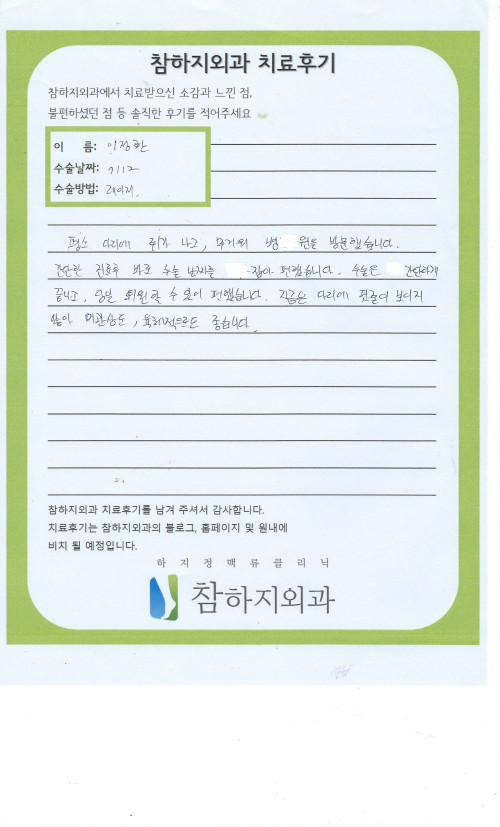 참하지외과 치료후기
참하지외과에서 치료받으신 소감과 느낀 점,
불편하셨던 점 등 솔직한 후기를 적어주세요
이 름: 이정환
수술날짜: 7/12
수술방법: 레이저
평소 다리에 쥐가 나고, 무거워 병 원을 방문했습니다.
간단한 진료후 바로 수술 날짜를 잡아 편했습니다. 수술은 간단하게
끝나고, 당일 퇴원할 수 있어 편했습니다. 지금은 다리에 핏줄이 보이지
않아 미관상도, 육체적으로도 좋습니다.
참하지외과 치료후기를 남겨 주셔서 감사합니다.
치료후기는 참하지외과의 블로그, 홈페이지 및 원내에
비치 될 예정입니다.
하지정맥류클리닉
참하지외과